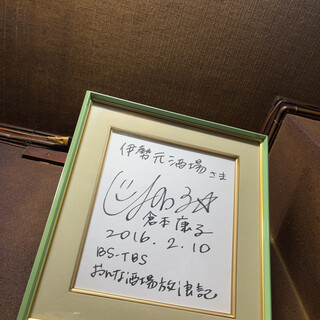 伊勢元酒場さま
倉本康子
2016.2.10
BS-TBS
おんな酒場放浪記